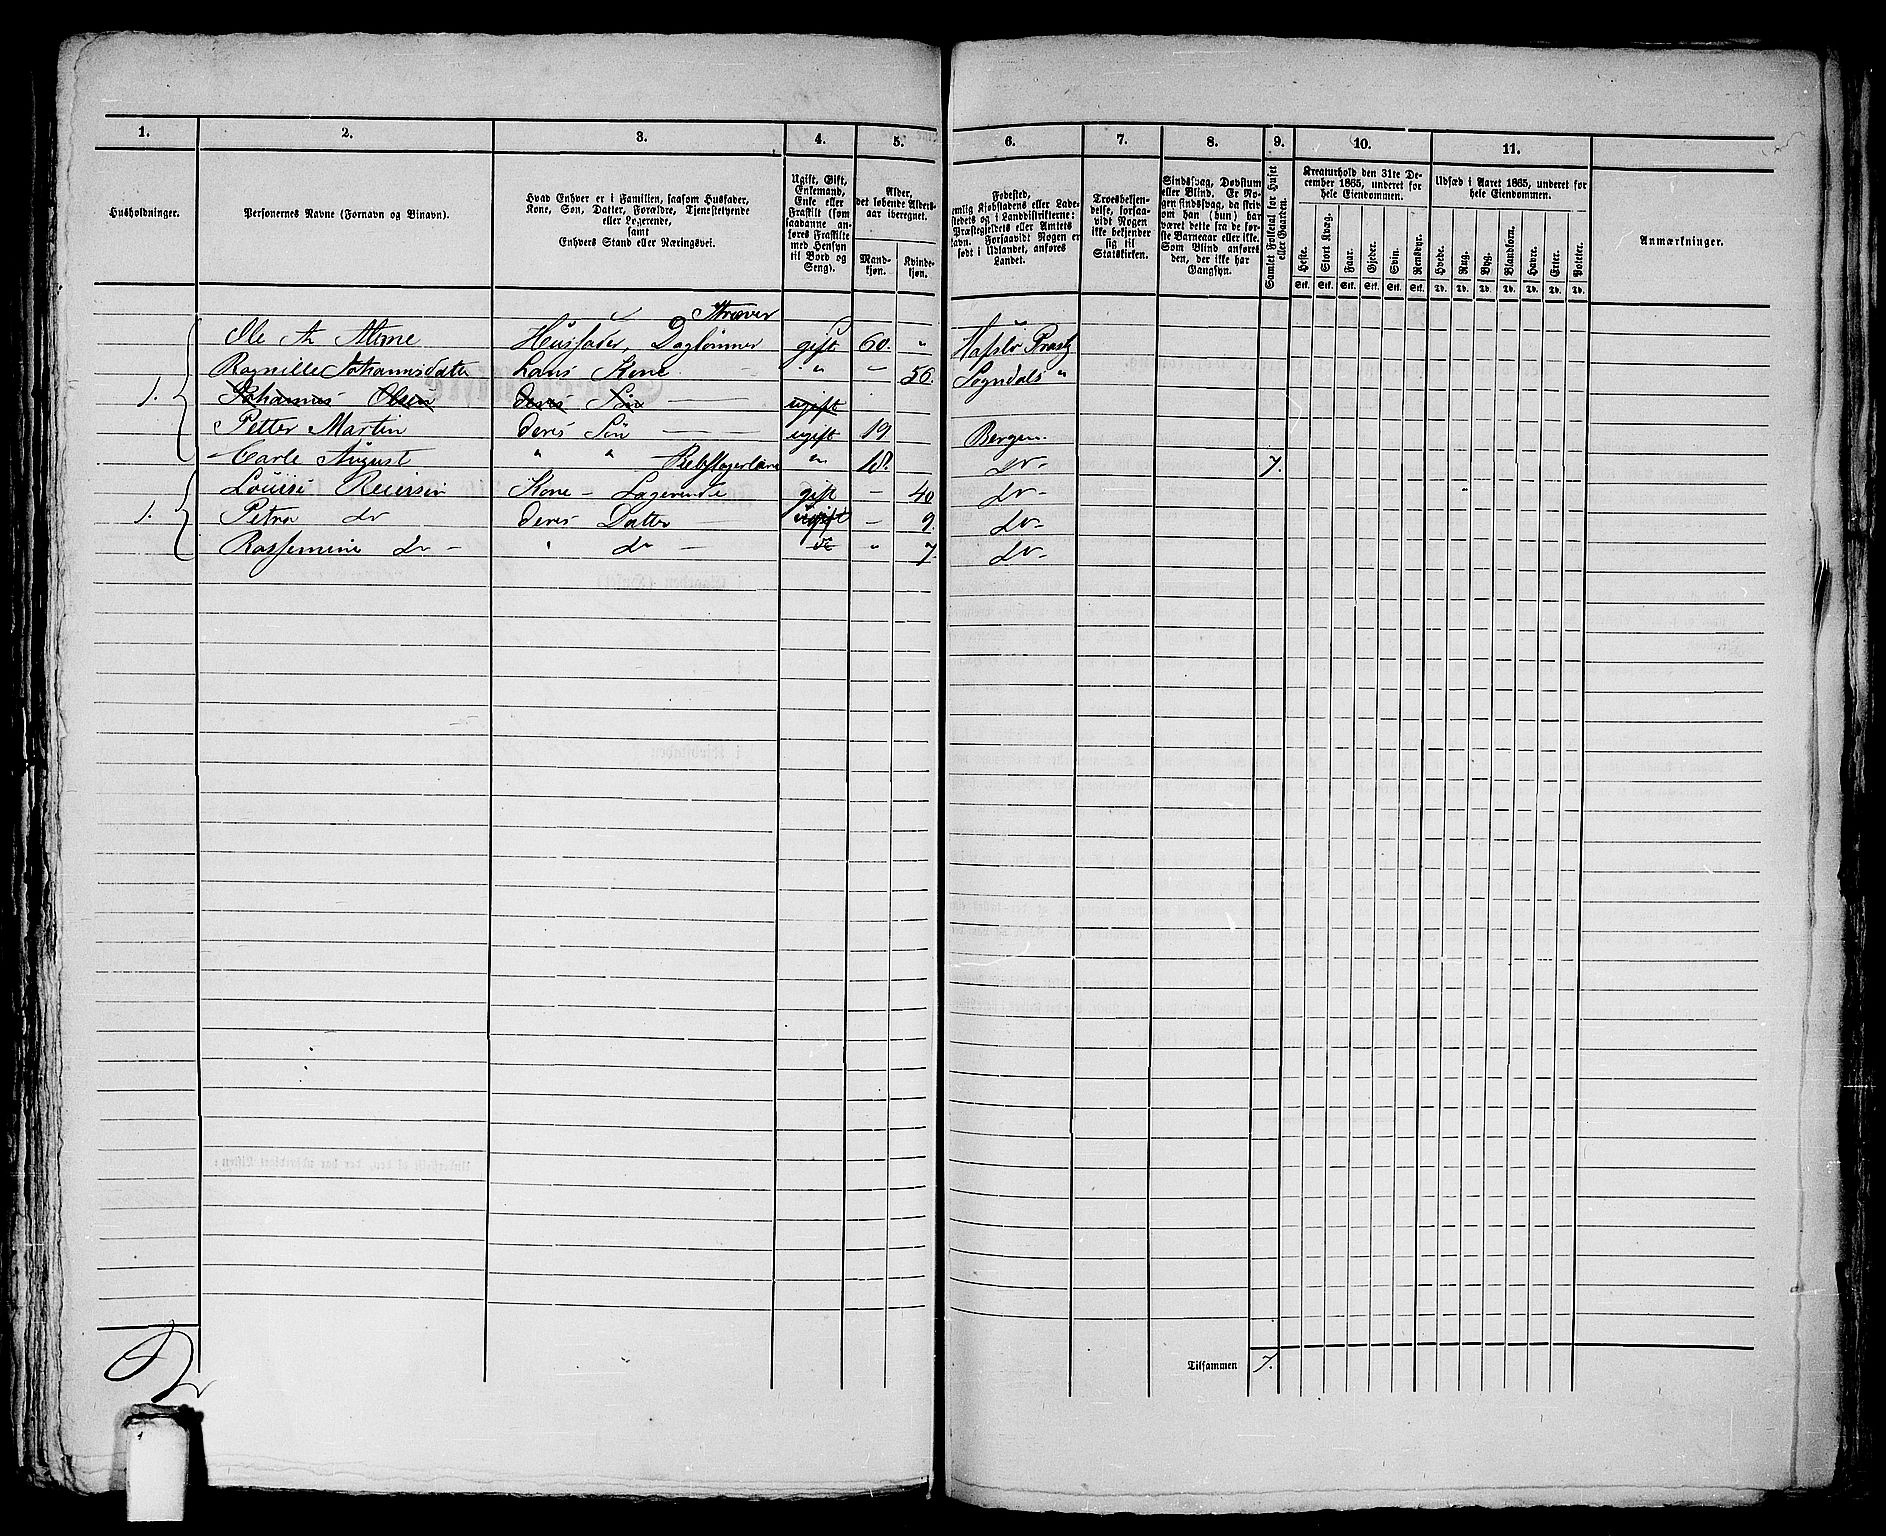 1. 2. 3. 4. 5. 6. 7. 8. 9. 10. 11.
Husholdninger.
Personernes Navne (Fornavn og Binavn).
Hvad Enhver er i Familien, saasom Husfader,
Kone, Søn, Datter, Forældre, Tjenestetyende
eller Logerende,
samt
Enhvers Stand eller Næringsvei.
Ugift, Gift,
Enkemand,
Enke eller
Fraskilt (som
saadanne an-
føres Fraskilte
med Hensyn
til Bord og
Seng).
Alder,
det løbende Alders-
aar iberegnet.
Mand-
kjøn.
Kvinde-
kjøn.
Fødested,
emlig Kjøbstadens eller Lade-
stedets og i Landdistrikterne:
Præstegjeldets eller Amtets
Navn. Forsaavidt Nogen er
født i Udlandet, anføres
Landet.
Troesbekjen-
delse, forsaa-
vidt Nogen
ikke bekjender
sig til
Statskirken.
Sindssvag, Døvstum
eller Blind. Er No-
gen sindssvag, da skriv
om han (hun) har
været dette fra de før-
ste Barneaar eller ikke.
Som Blind anføres
den, der ikke har
Gangsyn.
Samlet Folketal for Huset
eller Gaarden.
Kreaturhold den 31te De-
cember 1865, underet for
hele Eiendommen.
Heste. Stort Kvæg. Faar. Gjeder. Svin. Rensdyr.
Stk. Stk. Stk. Stk. Stk. Stk.
Udsæd i Aaret 1865, underet for
hele Eiendommen.
Hvede. Rug. Byg. Blandkorn. Havre. Erter. Poteter.
Td. Td. Td. Td. Td. Td. Td.
Anmærkninger.
Straver
Ole A. Alme Husfader, Daglønner gift 60. " Hafslo Præstg
Ragnille Johannsdatter Hans Kone — " — 56. Sogndals "
1. Johannes Olsen deres Søn — ugift
Petter Martin deres Søn — ugift 19 Bergen.
Carle August " " Rebslagerlære " 18. do - 7.
Louise Reiersen Kone - Logerende gift — 40 do -
1. Petra do deres Datter — ugift — 9. do -
Rassemine do — " do — do " 7. do -
Tilsammen 7.